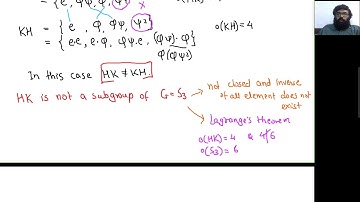 = { e , φ , φψ , ψ² }
KH = { e.e, e.φ, φψ.e, (φψ).φ } o(KH) = 4
φ(φψ²)
In this case HK ≠ KH.
HK is not a subgroup of G = S₃ → not closed and inverse of all element does not exist
→ Lagrange's theorem
o(HK) = 4 & 4∤6
o(S₃) = 6